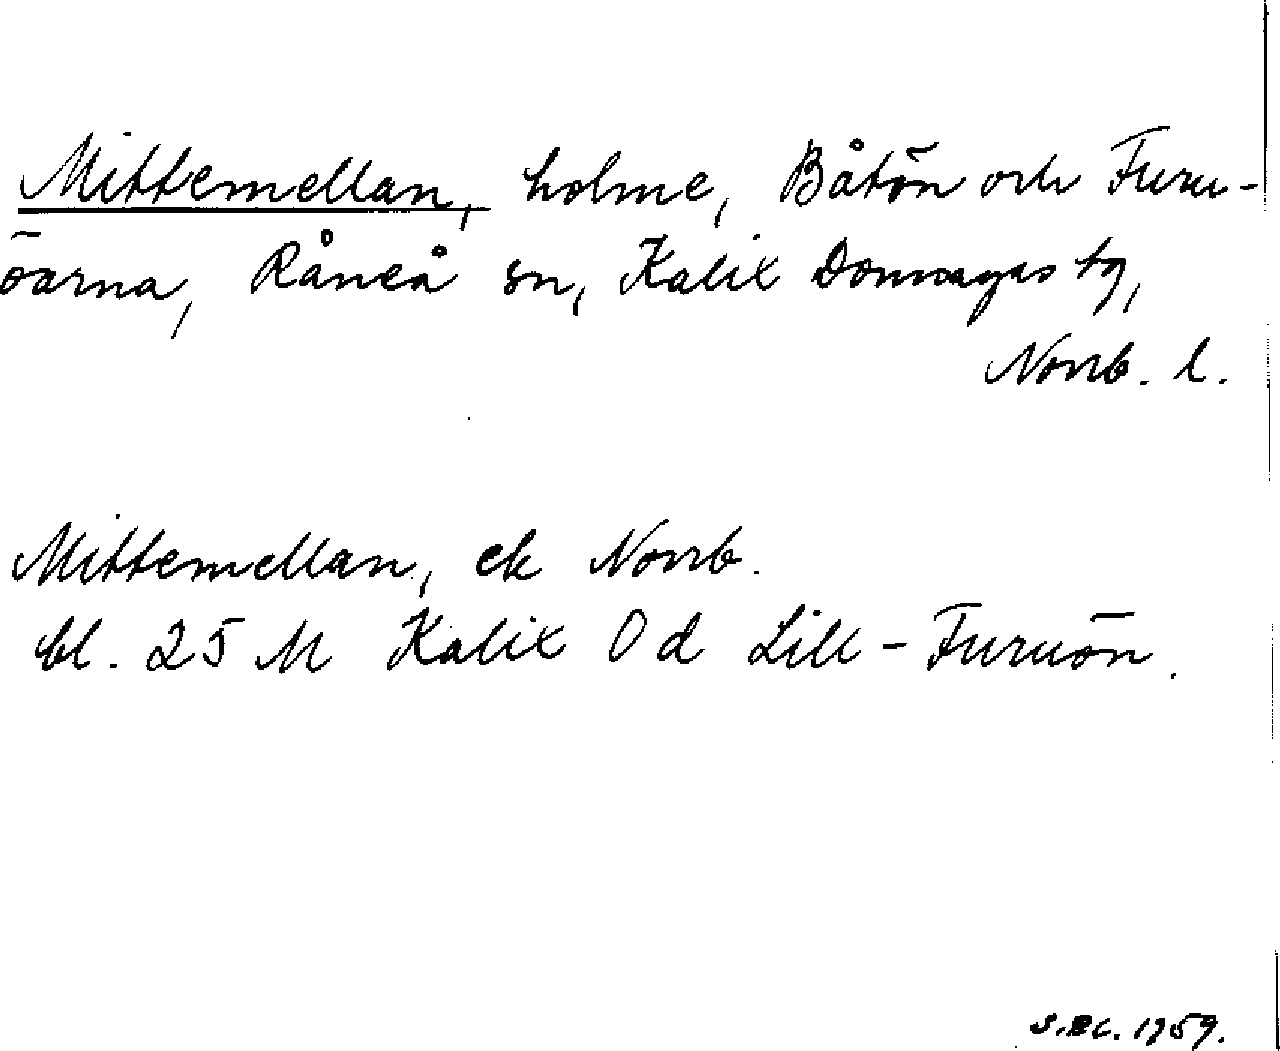 Mittemellan, holme, Båtön och Furu-
öarna, Råneå sn, Kalix Domsagas tg,
Norrb. l.
Mittemellan, ek Norrb.
bl. 25 M Kalix O d Lill-Furuön.
1959.